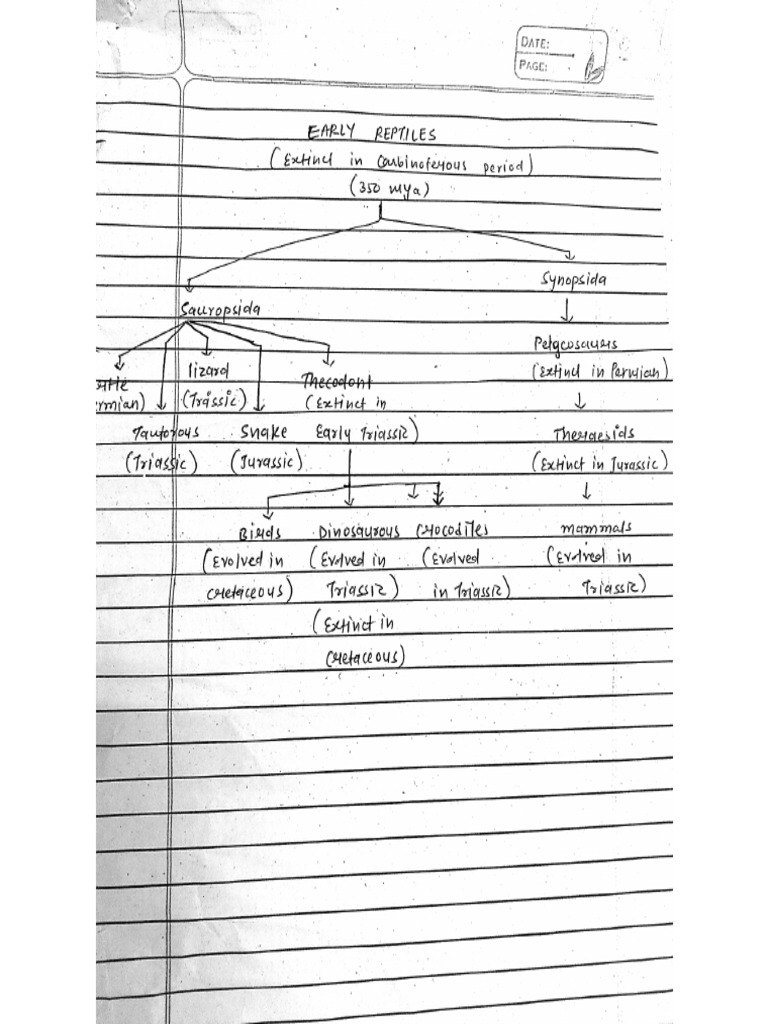 DATE:
PAGE:
EARLY REPTILES
(Extinct in Coubinoferous period)
(350 mya)
Synopsida
Sauropsida
Pelycosaurs
lizard
Thecodont
(Extinct in Permian)
rmian)
(Triassic)
(Extinct in
Snake
Early Triassic)
(Triassic)
(Jurassic)
(Extinct in Jurassic)
Birds
Dinosaurous
Crocodiles
mammals
(Evolved in
(Evolved in
(Evolved
(Evolved in
cretaceous)
Triassic)
in Triassic)
Triassic)
(Extinct in
cretaceous)